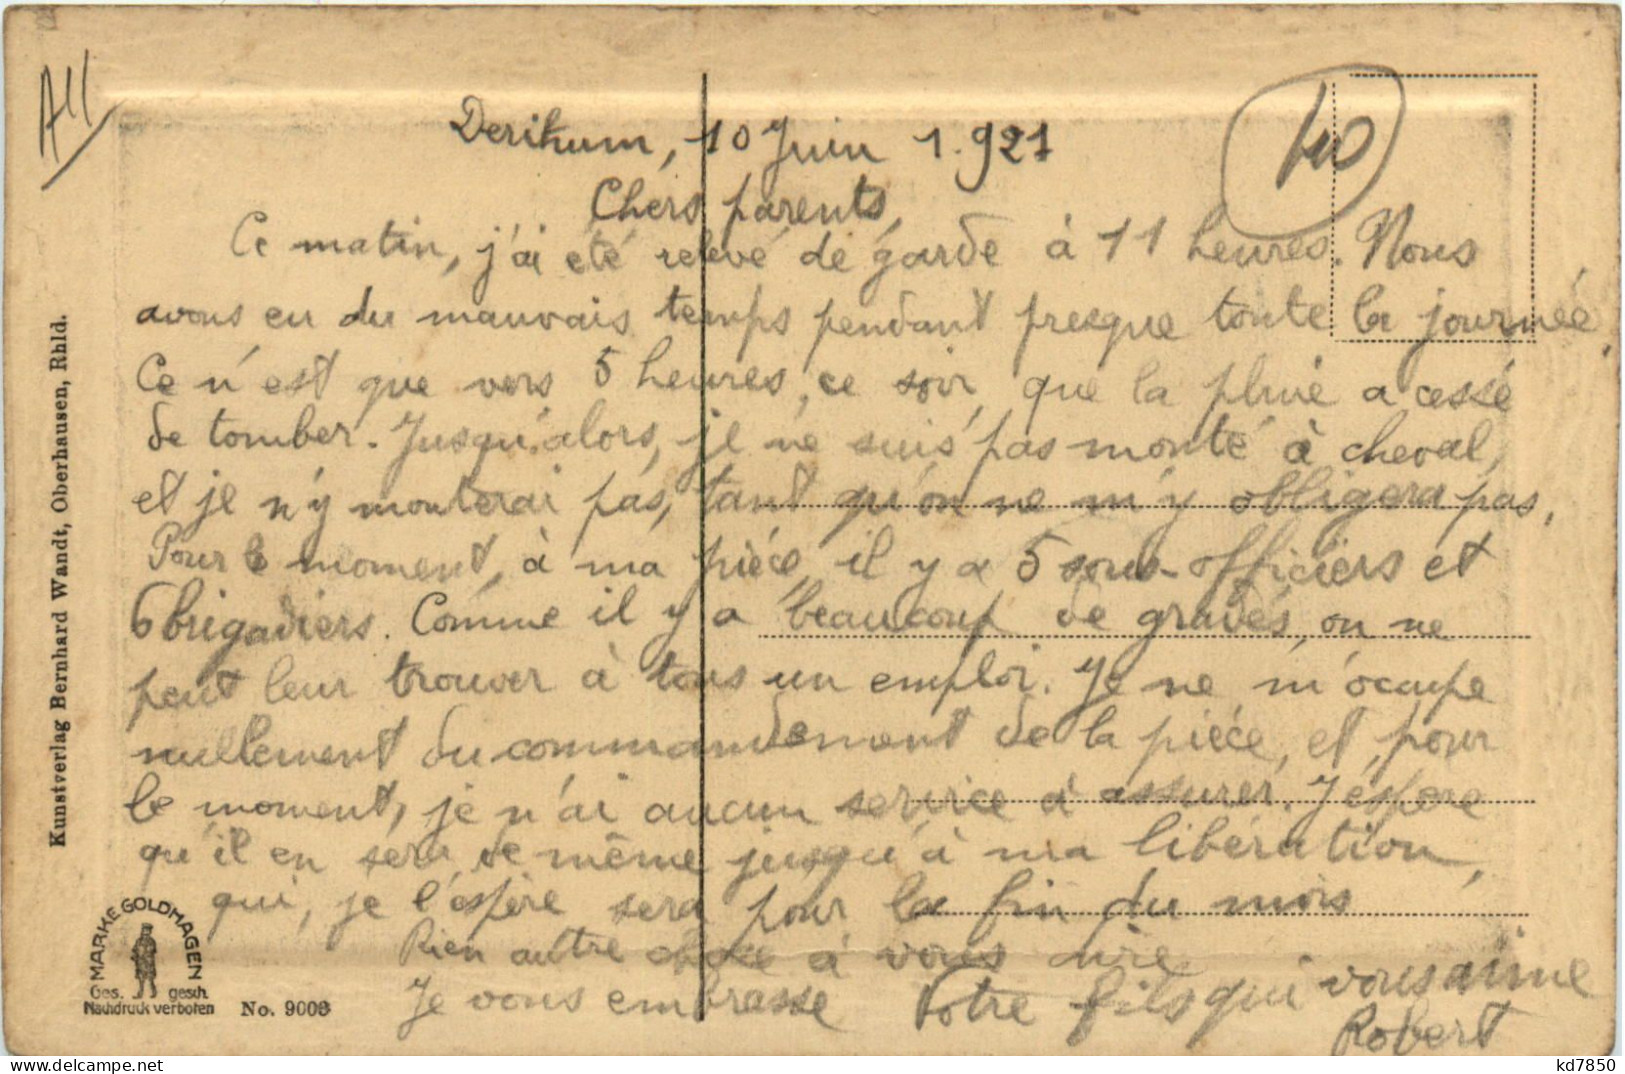 All
40
Derikum, 10 Juin 1.921
Chers parents,
Ce matin, j'ai été relevé de garde à 11 heures. Nous
avons eu du mauvais temps pendant presque toute la journée.
Ce n'est que vers 5 heures, ce soir, que la pluie a cessé
de tomber. Jusqu'alors, je ne suis pas monté à cheval,
et je n'y monterai pas, tant qu'on ne m'y obligera pas.
Pour le moment, à ma pièce, il y a 5 sous-officiers et
6 brigadiers. Comme il y a beaucoup de gradés, on ne
peut leur trouver à tous un emploi. Je ne m'ocupe
nullement du commandement de la pièce, et, pour
le moment, je n'ai aucun service à assurer. J'espère
qu'il en sera de même jusqu'à ma libération,
qui, je l'espère sera pour la fin du mois
Rien autre chose à vous dire
Je vous embrasse Votre fils qui vous aime
Robert
Kunstverlag Bernhard Wandt, Oberhausen, Rhld.
MARKE GOLDHAGEN
Ges. gesch.
Nachdruck verboten No. 9003
kd7850